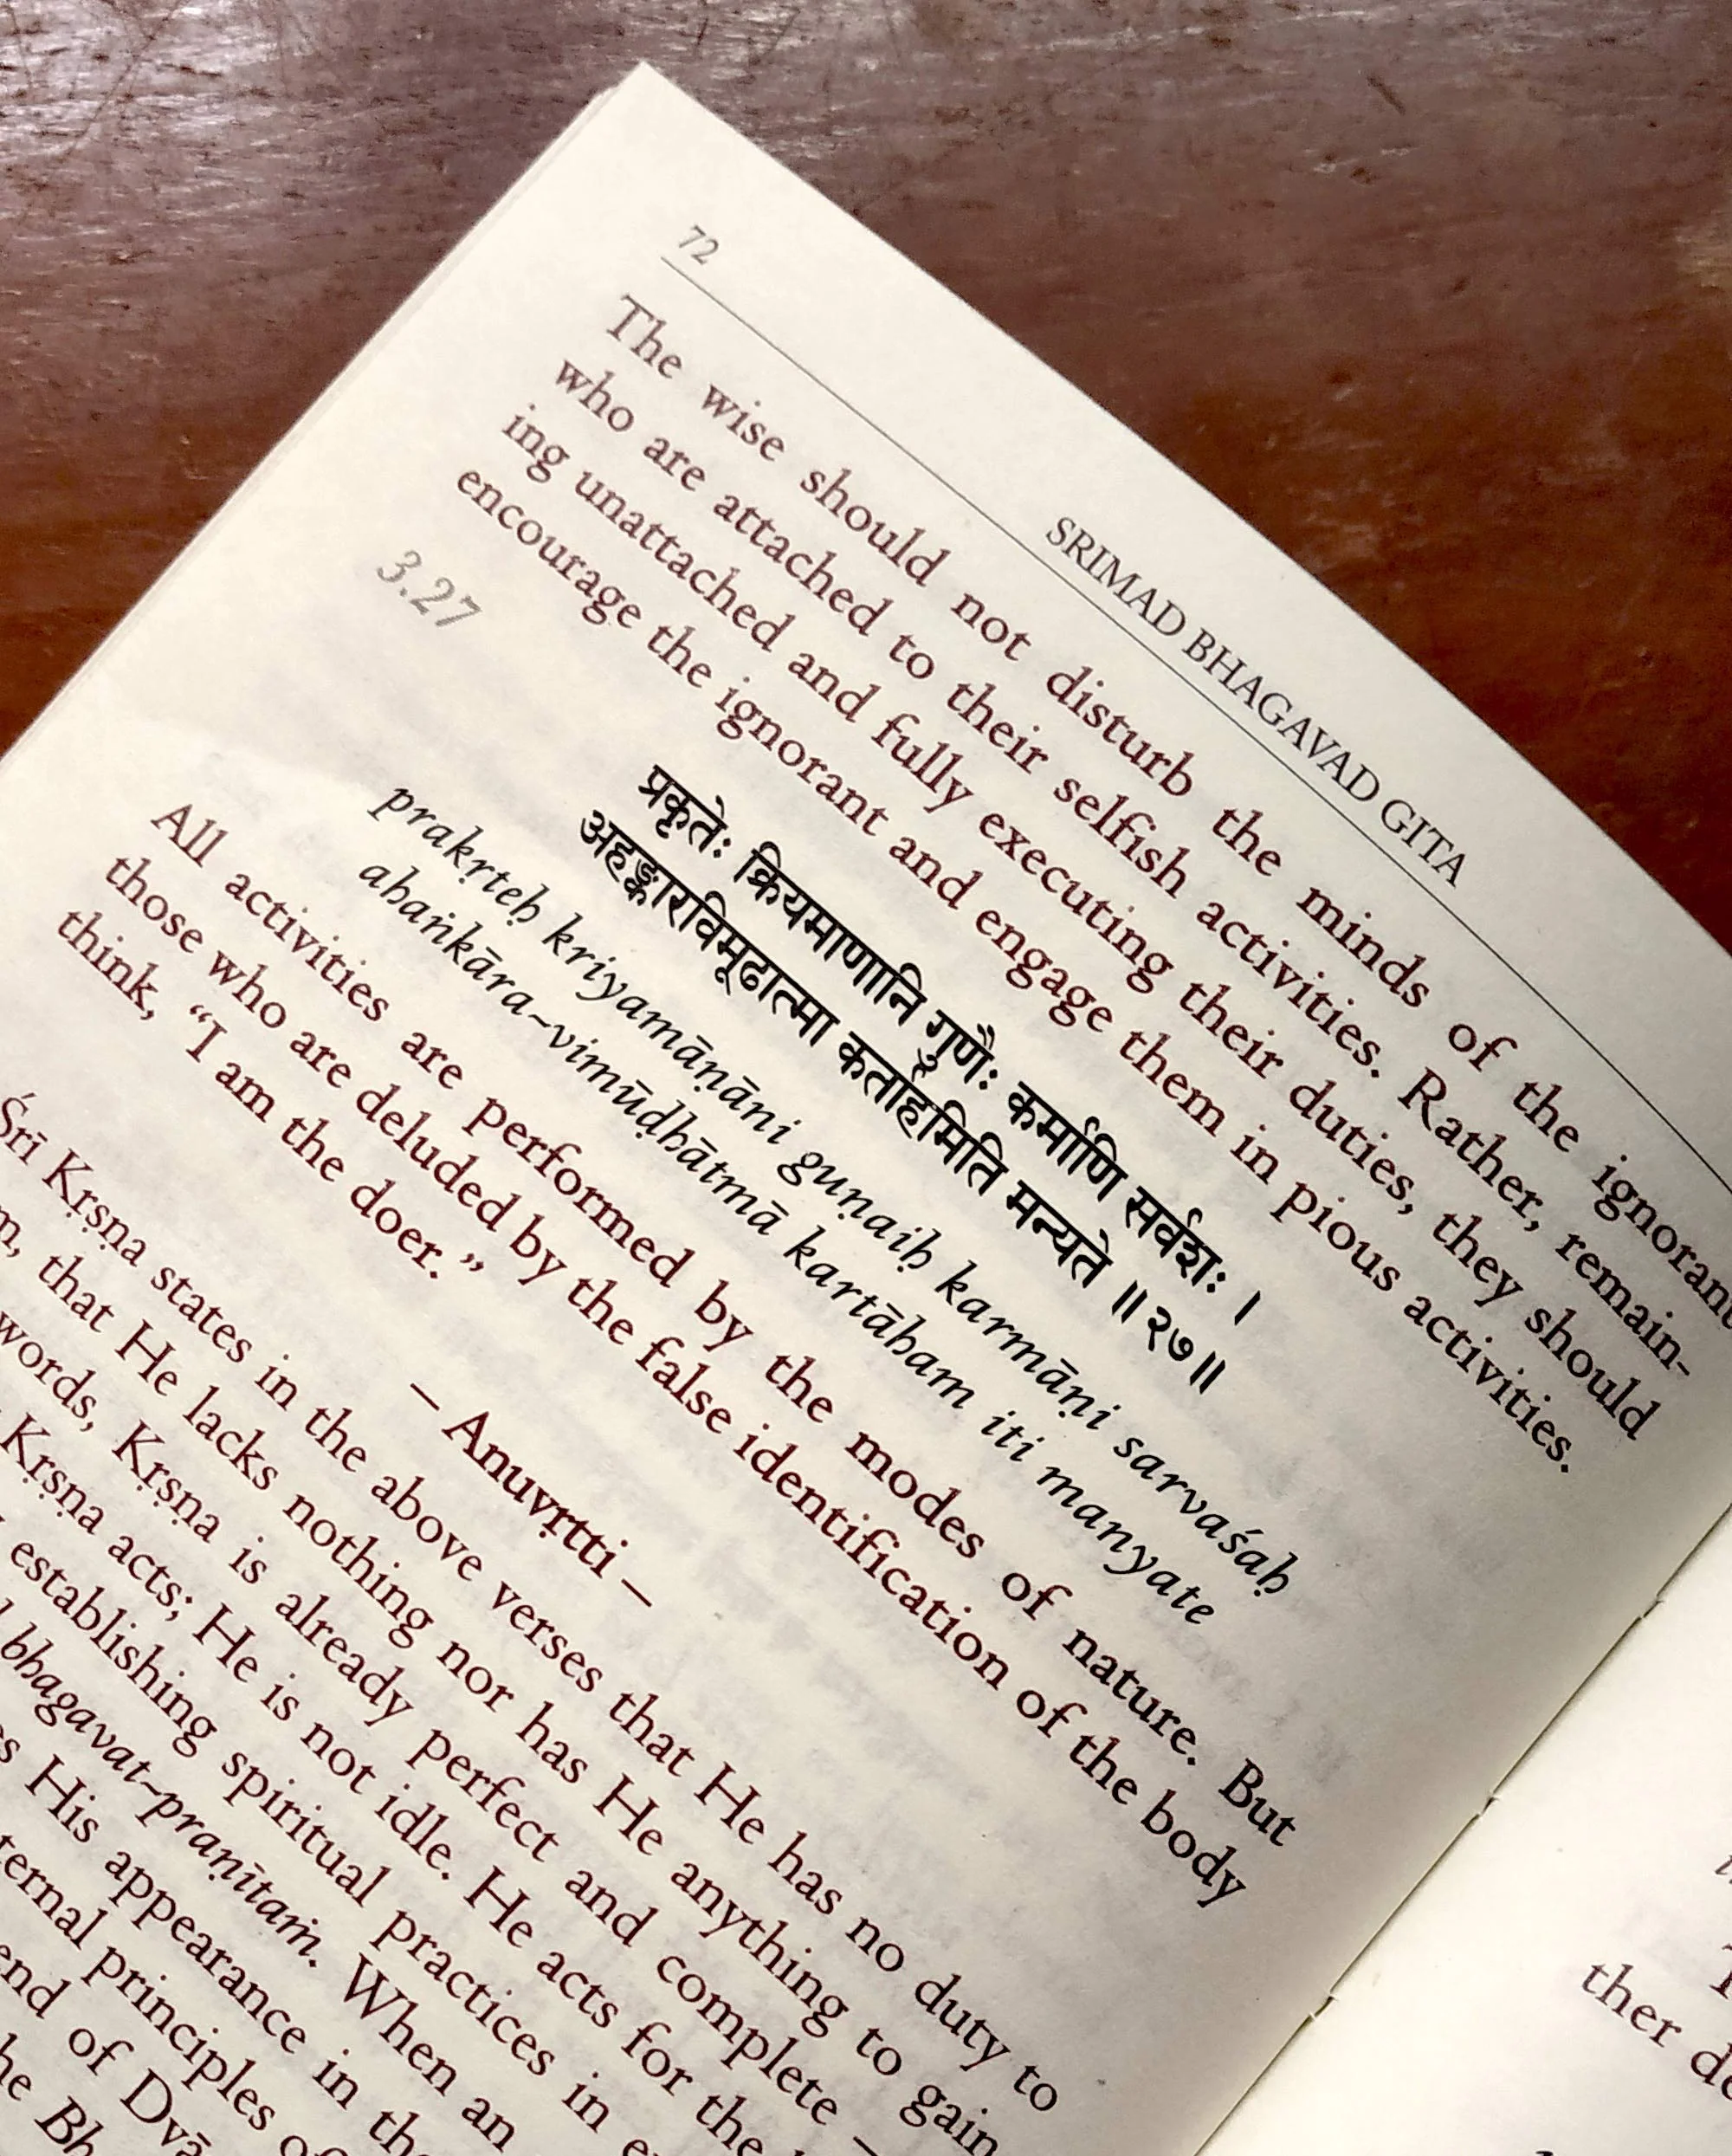 72
SRIMAD BHAGAVAD GITA
The wise should not disturb the minds of the ignorant
who are attached to their selfish activities. Rather, remain-
ing unattached and fully executing their duties, they should
encourage the ignorant and engage them in pious activities.
3.27
प्रकृतेः क्रियमाणानि गुणैः कर्माणि सर्वशः ।
अहङ्कारविमूढात्मा कर्ताहमिति मन्यते ॥२७॥
prakṛteḥ kriyamāṇāni guṇaiḥ karmāṇi sarvaśaḥ
ahaṅkāra~vimūḍhātmā kartāham iti manyate
All activities are performed by the modes of nature. But
those who are deluded by the false identification of the body
think, “I am the doer.”
– Anuvṛtti –
Śrī Kṛṣṇa states in the above verses that He has no duty to
that He lacks nothing nor has He anything to gain
words, Kṛṣṇa is already perfect and complete –
Kṛṣṇa acts; He is not idle. He acts for the
establishing spiritual practices in
bhagavat~praṇītaṁ. When an
His appearance in the
principles of
end of
ther